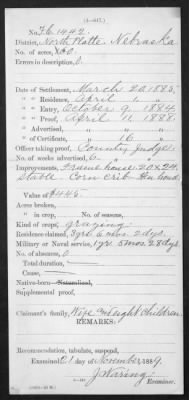 (4—643.)
No. F.C. 1442.
District, North Platte, Nebraska
No. of acres, 160.
Errors in description, 0.
Date of Settlement, March 20, 1883.
" Residence, April 1, "
" Entry, October 9, 1884.
" Proof, April 11, 1888.
" Advertised, " " "
" of Certificate, " 16 "
Officer taking proof, County Judge.
No. of weeks advertised, 6.
Improvements, Frame house 20x24,
Stable Corn crib Hen house
Value of $445.
Acres broken,
" in crop, No. of seasons,
Kind of crops, grazing
Residence claimed, 3 yrs 6 mos. 2 days.
Military or Naval service, 1 yr 5 mos 28 dys.
No. of absences, 0
Total duration,
Cause,
Native-born Naturalized,
Supplemental proof,
Claimant's family, Wife and eight children
REMARKS:
Recommendation, tabulate, suspend,
Examined 21 day of November 1889.
J. Waring,
Examiner.